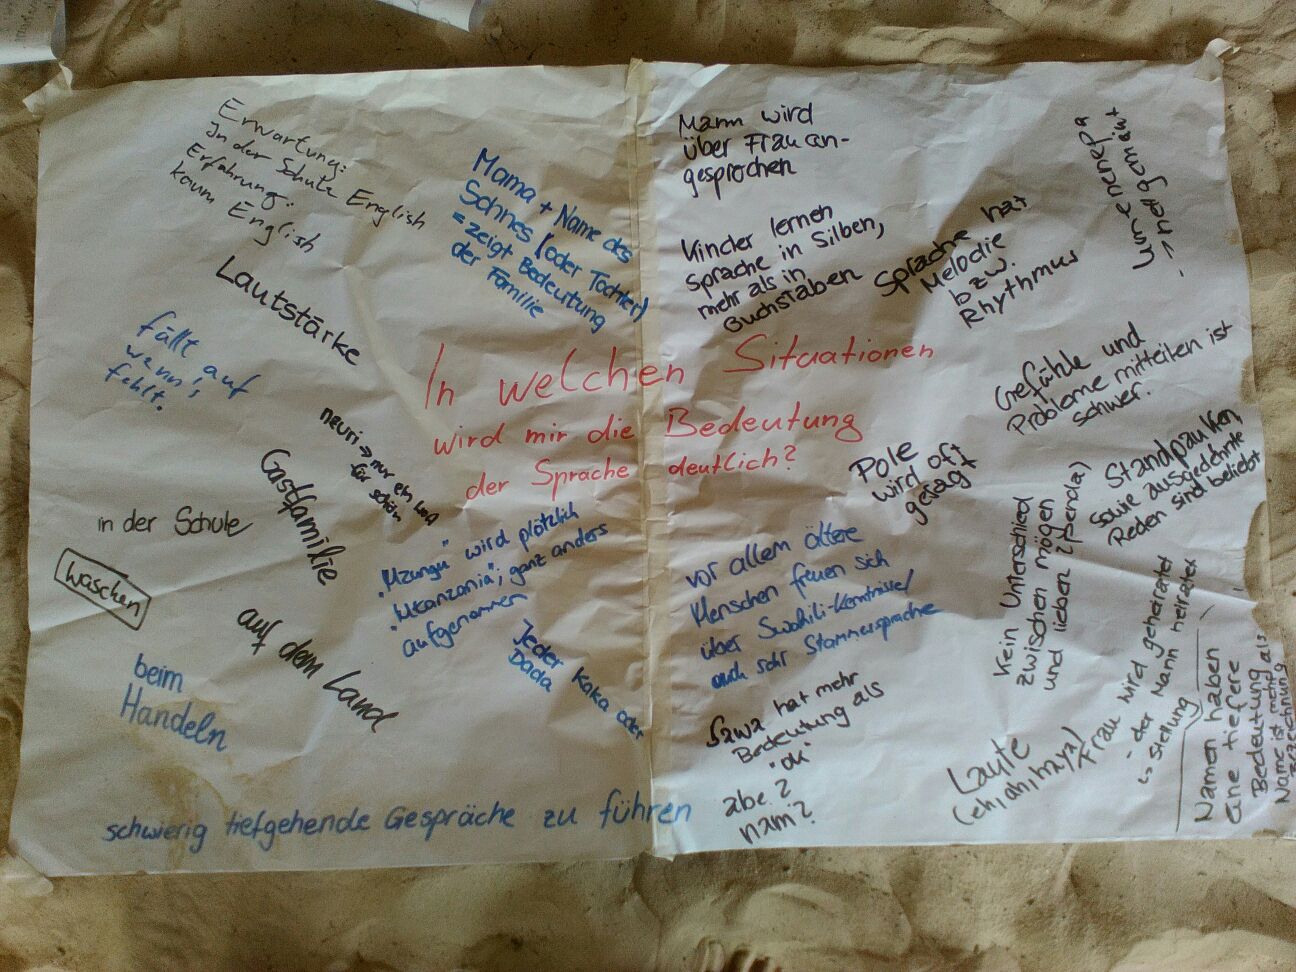 Erwartung:
In der Schule English
Erfahrung:
kaum English
Lautstärke
fällt auf
wenn's
fehlt.
Mama + Name des
Sohnes (oder Tochter)
= zeigt Bedeutung
der Familie
Mann wird
über Frau an-
gesprochen
Kinder lernen
Sprache in Silben,
mehr als in
Buchstaben
Sprache hat
Melodie
bzw.
Rhythmus
-> net gemeint
In welchen Situationen
wird mir die Bedeutung
der Sprache deutlich?
Gefühle und
Probleme mitteilen ist
schwer.
Standpauken,
sowie ausgedehnte
Reden sind beliebt
Pole
wird oft
gesagt
nzuri -> nur ein Wort
für schön
Gastfamilie
in der Schule
waschen
auf dem Land
beim
Handeln
"Mzungu" wird plötzlich
"Mtanzania"; ganz anders
aufgenommen
Jeder Kaka oder
Dada
vor allem ältere
Menschen freuen sich
über Swahili-Kenntnisse/
auch sehr Stammersprache
Kein Unterschied
zwischen mögen
und lieben (penda)
Sawa hat mehr
Bedeutung als
"ok"
abe?
nam?
Laute
(eh, ah, haya)
Frau wird geheiratet
- der Mann heiratet
↳ Stellung
Namen haben
eine tiefere
Bedeutung als
Name ist mehr
Bezeichnung
schwierig tiefgehende Gespräche zu führen